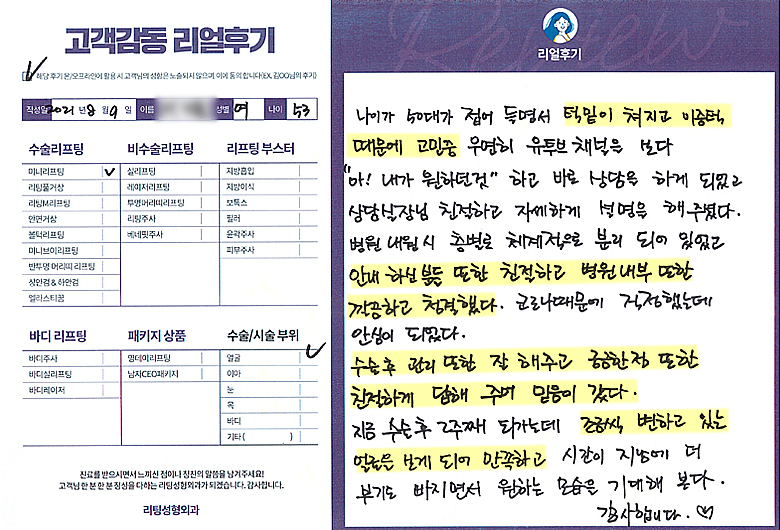 고객감동 리얼후기
해당 후기 온/오프라인에 활용 시 고객님의 성함은 노출되지 않으며 이에 동의 합니다(EX. 김OO님의 후기)
작성일 2021 년 8 월 9 일 이름 성별 여 나이 53
수술리프팅 비수술리프팅 리프팅 부스터
미니리프팅 실리프팅 지방흡입
리팅풀거상 레이저리프팅 지방이식
리팅M리프팅 투명머리띠리프팅 보톡스
안면거상 리팅주사 필러
볼턱리프팅 베네핏주사 윤곽주사
미니브이리프팅 피부주사
반투명 머리띠 리프팅
상안검 & 하안검
엘라스티꿈
바디 리프팅 패키지 상품 수술/시술 부위
바디주사 원데이리프팅 얼굴
바디실리프팅 남자CEO패키지 이마
바디레이저 눈
목
바디
기타 ( )
진료를 받으시면서 느끼신 점이나 칭찬의 말씀을 남겨주세요!
고객님 한 분 한 분 정성을 다하는 리팅성형외과가 되겠습니다. 감사합니다.
리팅성형외과
Review
리얼후기
나이가 50대가 접어 들면서 턱밑이 쳐지고 이중턱
때문에 고민중 우연히 유투브 채널을 보다
"아! 내가 원하던것" 하고 바로 상담을 하게 되었고
상담실장님 친절하고 자세하게 설명을 해주셨다.
병원 내원시 층별로 체계적으로 분리 되어 있었고
안내 하신분들 또한 친절하고 병원내부 또한
깔끔하고 청결했다. 코로나때문에 걱정했는데
안심이 되었다.
수술후 관리 또한 잘 해주고 궁금한점 또한
친절하게 답해 주며 믿음이 갔다.
지금 수술후 2주째 되가는데 조금씩 변하고 있는
얼굴을 보게 되어 만족하고 시간이 지남에 더
부기도 빠지면서 원하는 모습을 기대해 본다.
감사합니다. ♡